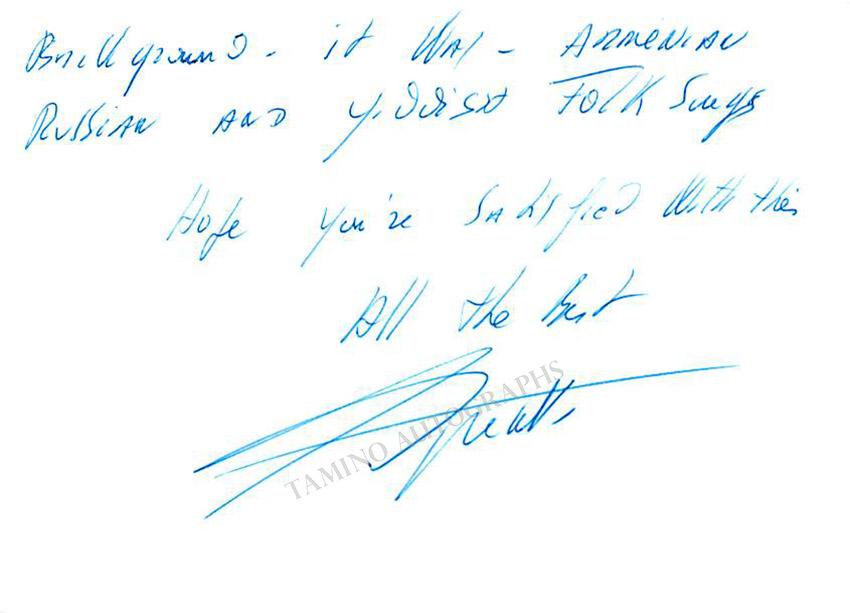 Background - it was - Armenian
Russian and Yiddish Folk Songs
Hope you're satisfied with this
All the best
TAMINO AUTOGRAPHS